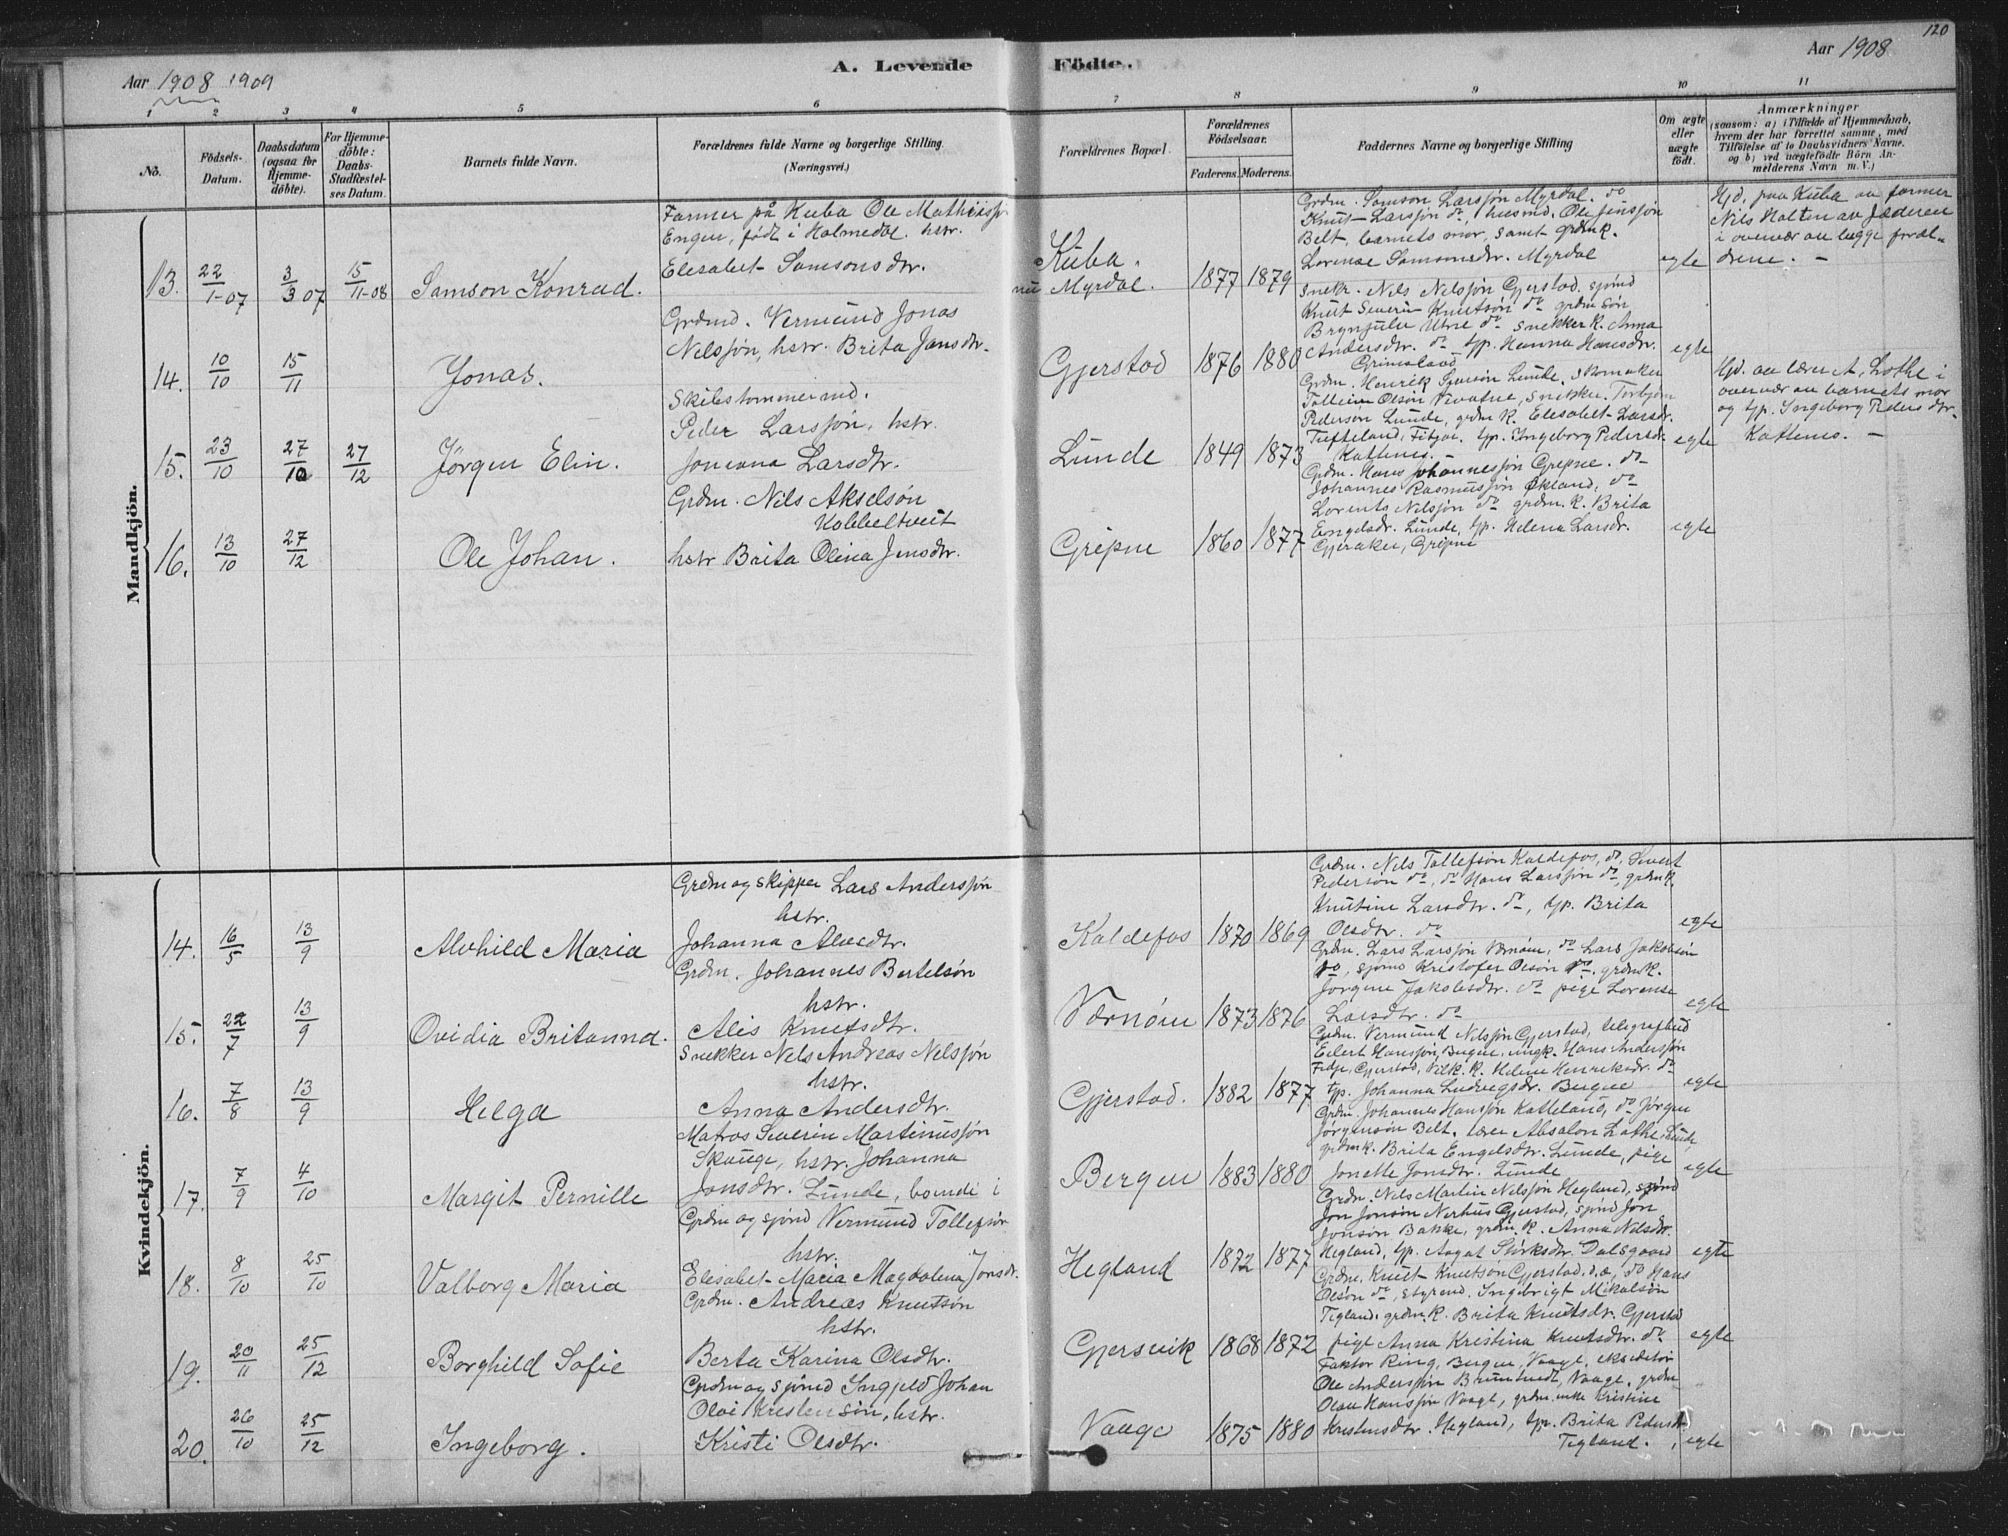 120
Aar 1908 1909
A. Levende
Födte.
Aar 1908
1 2 3 4 5 6 7 8 9 10 11
No.
Födsels-
Datum.
Daabsdatum
(ogsaa for
Hjemme-
döbte).
For Hjemme-
döbte:
Daabs-
Stadfæstel-
ses Datum.
Barnets fulde Navn.
Forældrenes fulde Navne og borgerlige Stilling
(Næringsvei.)
Forældrenes Bopæl.
Forældrenes
Födselsaar.
Faderens. Moderens.
Faddernes Navne og borgerlige Stilling
Om ægte
eller
uægte
födt.
Anmærkninger
(saasom: a) i Tilfælde af Hjemmedaab,
hvem der har forrettet samme, med
Tilföielse af to Daabsvidners Navne.
og b) ved uægtefödte Börn An-
melderens Navn m. V.)
Mandkjön.
13.
22/1-07
3/3 07
15/11-08
Samson Konrad.
Farmer på Kuba Ole Mathiassjön
Engen, født i Holmedal. hstr.
Elesabet Samsonsdtr.
Kuba.
nu Myrdal.
1877 1879
Grdm. Samson Larssjön Myrdal. do
Knut Larssjön do, husmd. Ole Jenssjön
Belt, barnets mor, samt grdmk.
Lorense Samsonsdtr. Myrdal
egte
Hjd. paa Kuba av farmer
Nils Holten av Jæderen
i overvær av begge foræl-
drene. -
14.
10/10
15/11
Jonas.
Grdmd. Vermund Jonas
Nelssjön, hstr. Brita Jansdtr.
Gjerstad
1876 1880
Snekr. Nils Nelssjön Gjerstad, sjömd
Knut Severin Knutsön do grdm. sön
Brynjulv Utne do snekker k. Anna
Andersdtr. do tjp. Hanna Hansdtr.
Grimsland
egte
15.
23/10
27/10
27/12
Jörgen Elin.
Skibstømmermd.
Peder Larssjön, hstr.
Joneana Larsdtr.
Lunde
1849 1873
Grdm. Henrik Larsön Lunde, skomaker
Tolleiv Olsön Vevatne, snekker Torbjörn
Pedersön Lunde, grdm k. Elesabet Larsdtr.
Tufteland, Fitjar, tjp. Ingeborg Pedersdtr.
Kattenes. -
egte
Hjd. av lærer A. Lothe i
overvær av barnets mor
og tjp. Ingeborg Pedersdtr.
Kattenes. -
16.
13/10
27/12
Ole Johan.
Grdm. Nils Akselsön
Hobbeltveit
hstr Brita Olina Jensdtr.
Grepne
1860 1877
Grdm. Hans Johannessjön Grepne. do
Johannes Rasmussjön Økland, do
Lorents Nelsjön do grdm. k. Brita
Engelsdtr. Lunde, tjp. Helena Larsdr.
Gjeraker, Grepne
egte
Kvindekjön.
14.
16/5
13/9
Alvhild Maria
Grdm og skipper Lars Anderssjön
hstr.
Johanna Alvesdtr.
Kaldefos
1870 1869
Grdm. Nils Tollefsön Kaldefos, do. Sivert
Pedersön do, do Hans Larssjön do, grdmk.
Knutine Larsdtr. do, tjp. Brita
Olsdtr. do
egte
15.
22/7
13/9
Ovidia Britanna.
Grdm. Johannes Bertelsön
hstr.
Alis Knutsdtr.
Værnöm
1873 1876
Grdm. Lars Larssjön Værnöm, do Lars Jakobsön
do, sjömd Kristofer Olsön do, grdmk.
Jorgine Jakobsdtr. do pige Lorense
Larsdtr. do
egte
16.
7/8
13/9
Helga
Snekker Nels Andreas Nelssjön
hstr.
Anna Andersdtr.
Gjerstad.
1882 1877
Grdm. Vermund Nilssjön Gjerstad, telegrafbud
Eilert Hanssjön, Bergen, ungk. Hans Anderssjön
Fitje, Gjerstad, Helene Henriksdr. do
tjp. Johanna Ludvigsdr. Bergen
egte
17.
7/9
4/10
Margit Pernille
Matros Severin Martinussjön
Skauge, hstr. Johanna
Jonsdtr. Lunde, boende i
Bergen
1883 1880
Grdm. Johannes Hanssjön Katteland, do Jörgen
Jörgensön Belt, lærer Absalon Lothe, Lunde,
grdmk. Brita Engelsdtr. Lunde, pige
Jonette Jonsdtr. Lunde
egte
18.
8/10
25/10
Valborg Maria
Grdm og sjömd Vermund Tollefsön
hstr.
Elesabet Maria Magdalena Jonsdtr.
Hegland
1872 1877
Grdm. Nils Martin Nelssjön Hegland, sjömd
Jon Jonsön Nerhus Gjerstad, sjömd Jon
Jonsön Bakke, grdm. k. Anna Nelsdtr.
Hegland, tjp. Aagat Störksdtr. Dalsgaard
egte
19.
20/11
25/12
Borghild Sofie
Grdm. Andreas Knutsön
hstr.
Berta Karina Olsdtr.
Gjersvik
1868 1872
Grdm. Knut Knutsön Gjerstad, do Hans
Olsön do, styrmd. Ingebrigt Mikalsön
Tigland, grdm. k. Brita Knutsdtr. Gjerstad
pige Anna Kristina Knutsdtr. do
egte
20.
26/10
25/12
Ingeborg.
Grdm og sjömd Ingjeld Johan
Olai Kristensön, hstr.
Kristi Olsdtr.
Vaage
1875 1880
Faktor Ring, Bergen, Vaage, ekspeditör
Ole Anderssjön Vaage, grdm
Olav Hanssjön Vaage, grdm. enke Kristine
Kristensdtr. Hegland, tjp. Brita Pedersdtr.
Tigland.
egte